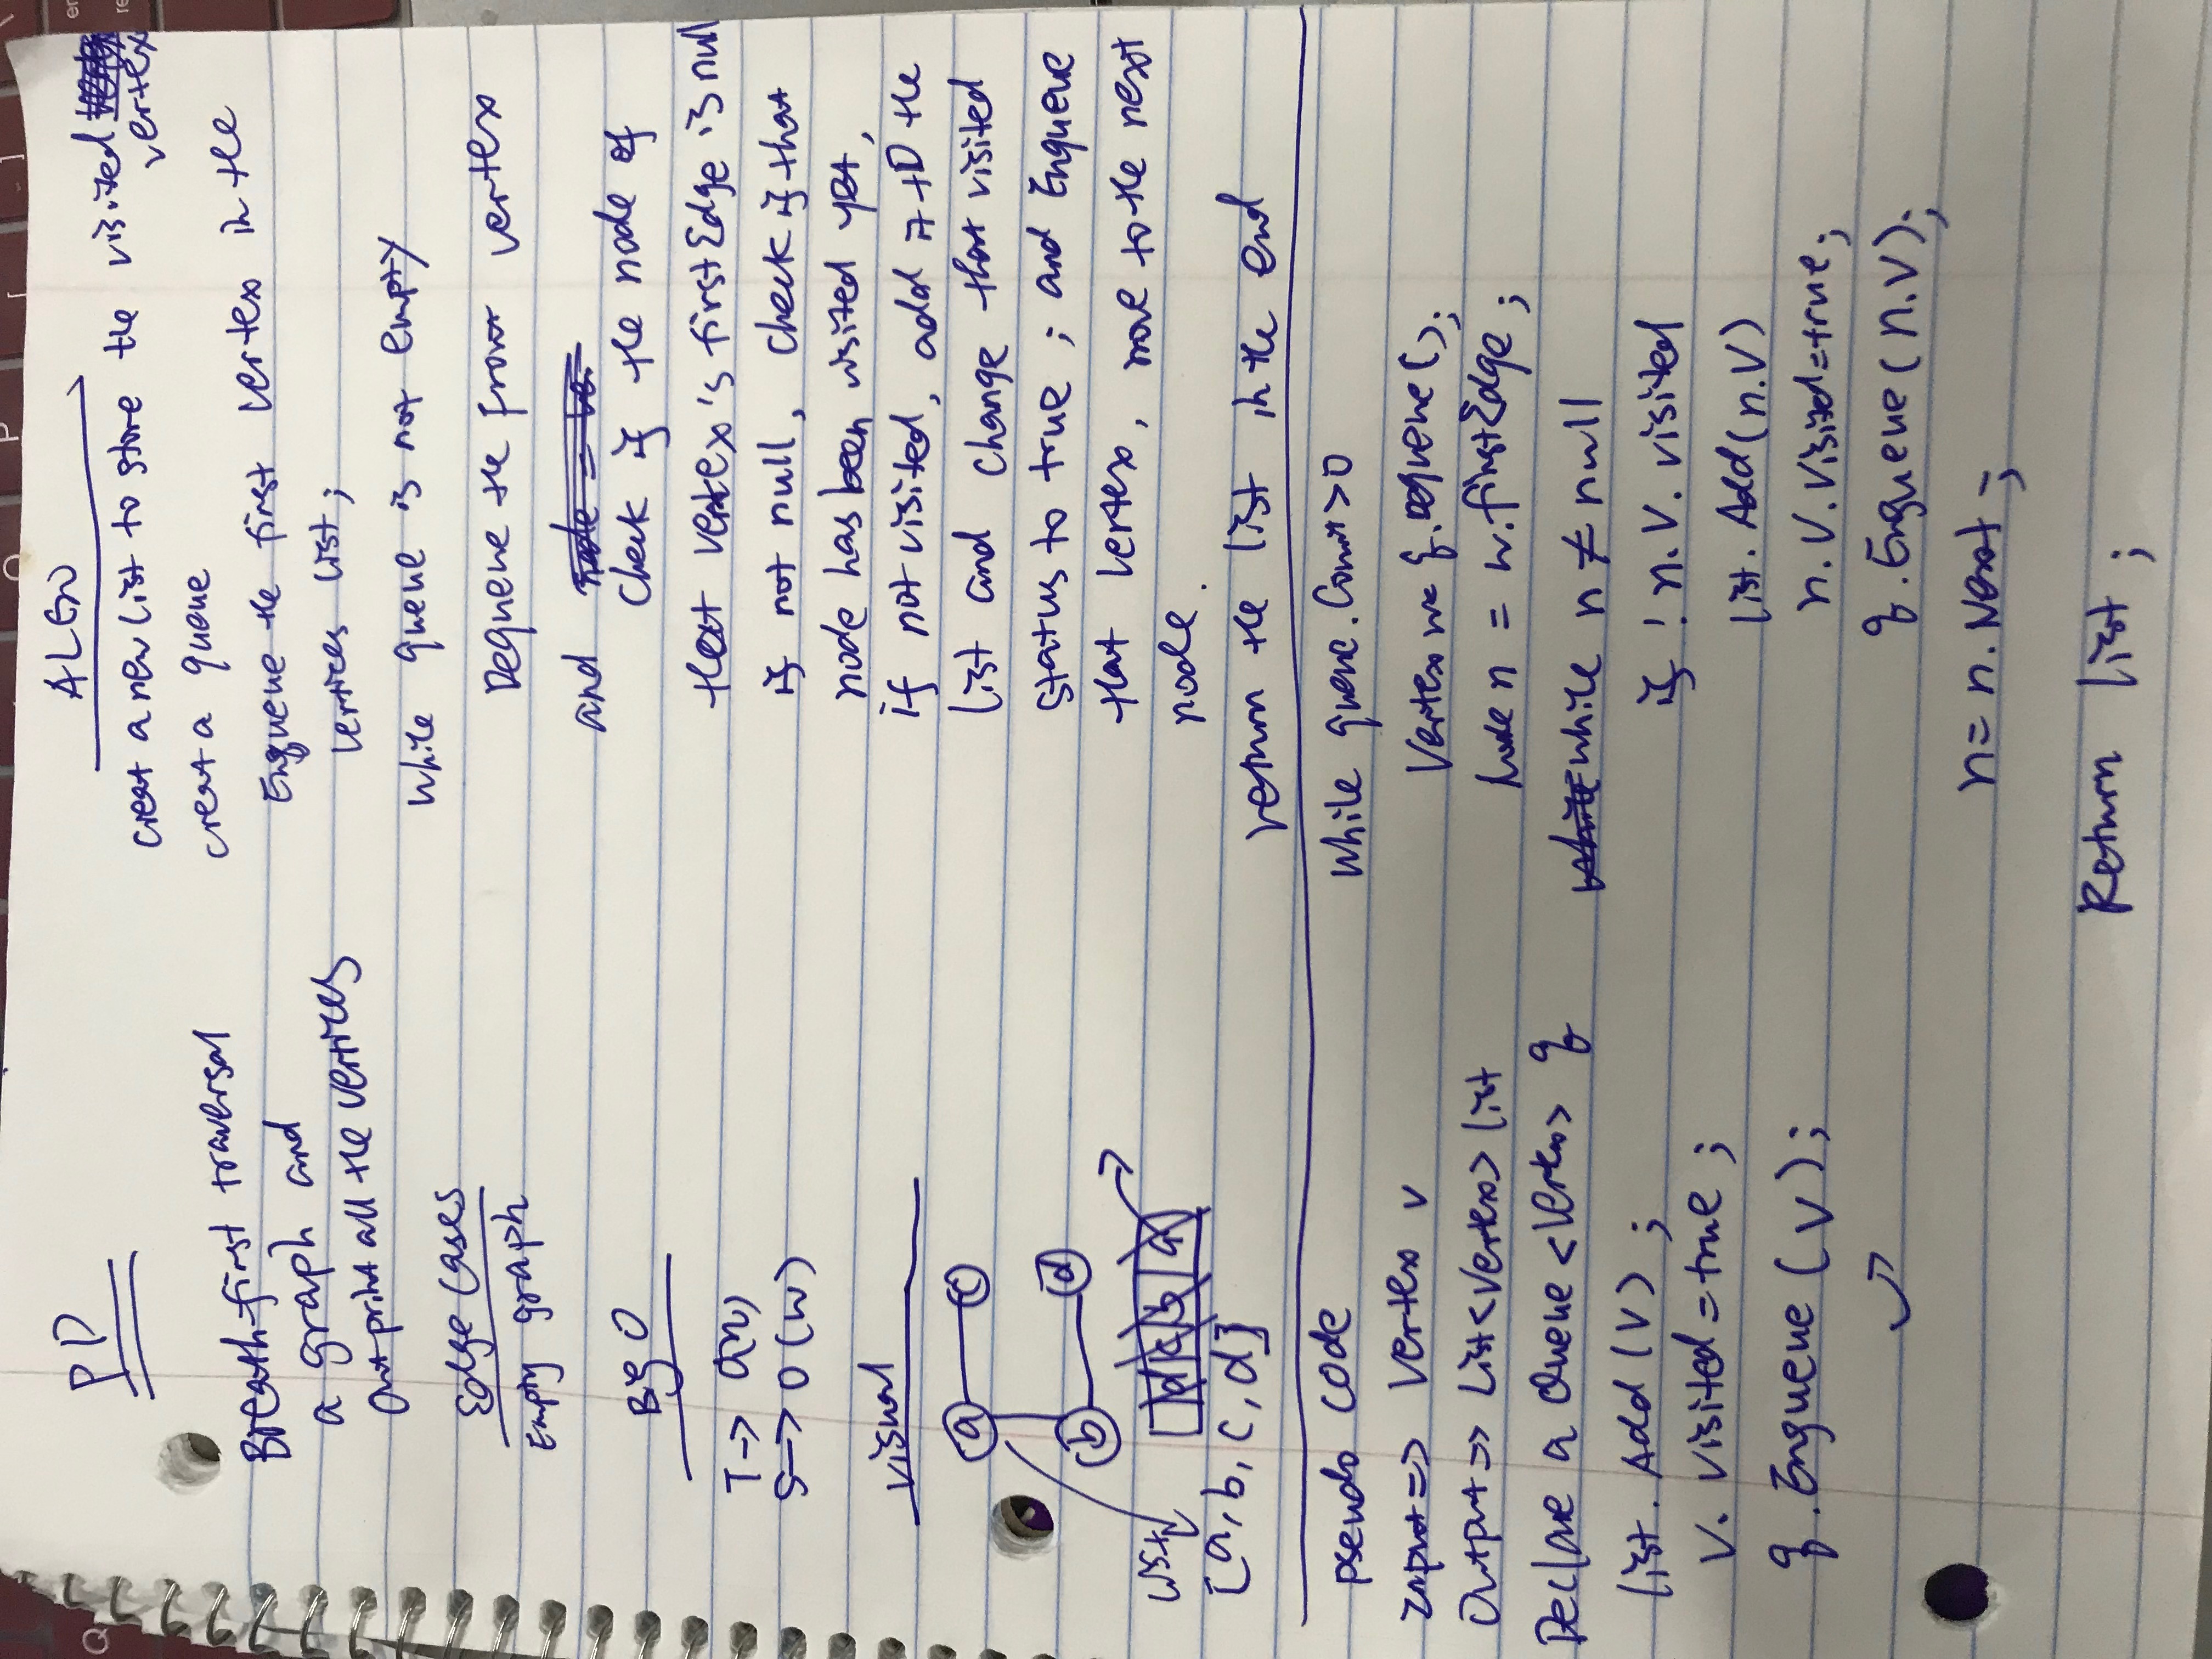 PD
Breath-first traversal
a graph and
Outprint all the vertices
Edge Cases
Empty graph
Big O
T -> O(n)
S -> O(w)
visual
a c
b d
List
d c b a
[a, b, c, d]
ALGO
creat a new list to store the visited
vertex
creat a queue
Enqueue the first vertex in the
vertices list;
while queue is not empty
Dequeue the front vertex
and
Check if the node of
that vertex's firstEdge is null
if not null, check if that
node has been visited yet,
if not visited, add it to the
list and change that visited
status to true ; and Enqueue
that vertex, move to the next
node.
return the list in the end
pseudo code
Input => Vertex v
Output => List<Vertex> list
Declare a Queue <Vertex> q
list. Add (V) ;
V. visited = true ;
q. Enqueue (V);
while queue. Count > 0
Vertex w = q. Dequeue ();
Node n = w. firstEdge ;
while n ≠ null
if ! n. V. visited
list. Add (n.V)
n. V. Visited = true;
q. Enqueue (n.V);
n = n. Next ;
Return list ;